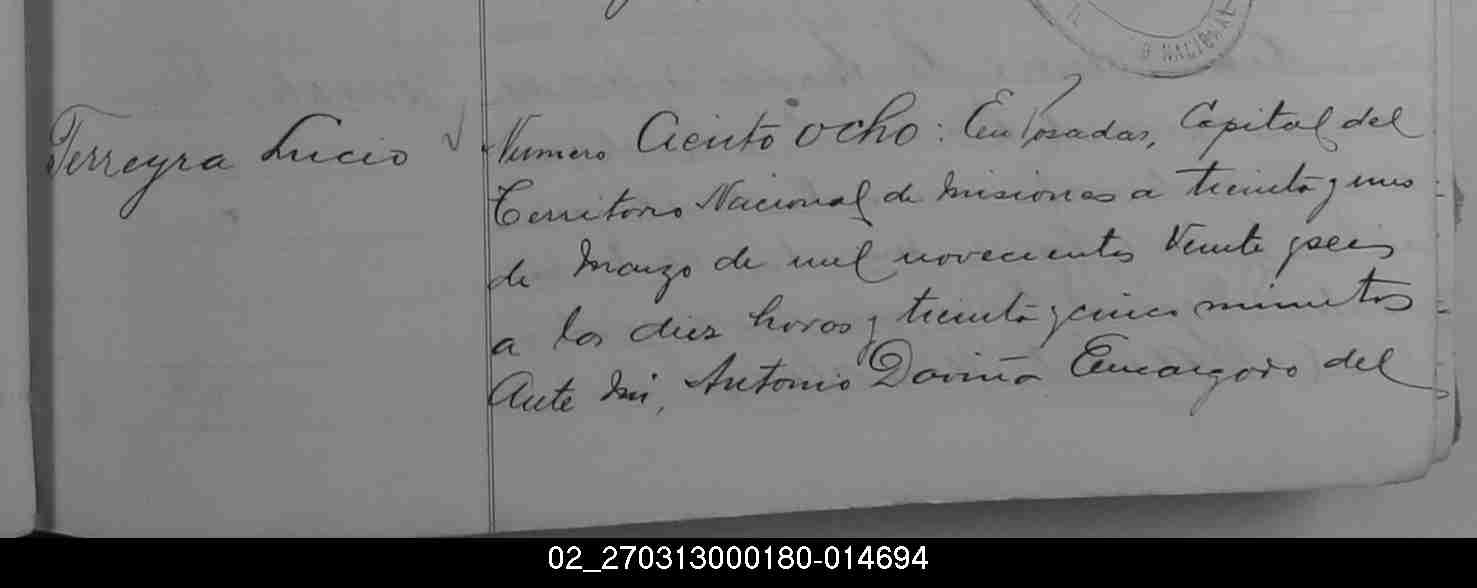 O NACIONAL
Ferreyra Lucio
Numero Ciento ocho: En Posadas, Capital del
Territorio Nacional de Misiones a treinta y uno
de Marzo de mil novecientos Veinte y seis
a las diez horas y treinta y cinco minutos
Ante Mi, Antonio Daviña Encargado del
02_270313000180-014694